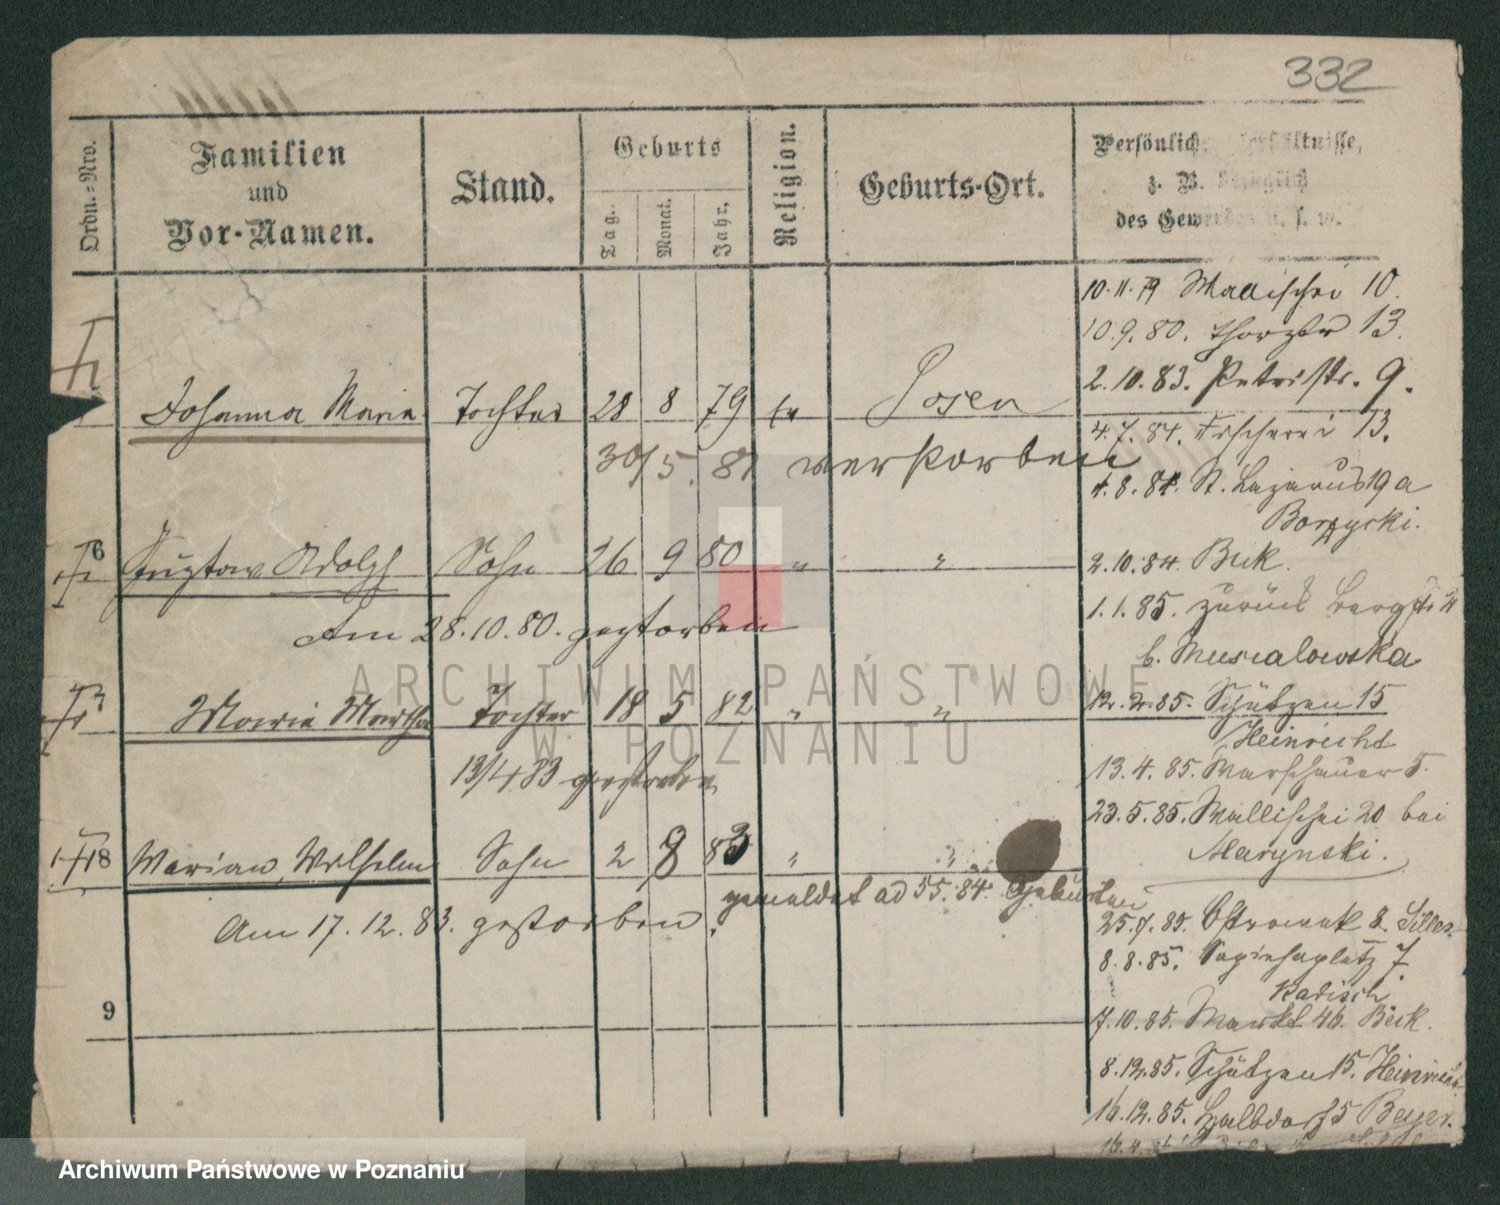 332
Ordn.-Nro.
Familien
und
Vor-Namen.
Stand.
Geburts
Tag.
Monat.
Jahr.
Religion.
Geburts-Ort.
Persönliche
z. B. bezüglich
des Gewerbes u. s. w.
Johanna Maria Tochter 28 8 79 Posen
30/5. 81 verstorben
6 Gustav Adolph Sohn 26 9 80 " "
Am 28.10.80. gestorben
7 Maria Martha Tochter 18 5 82 " "
13/4 83 gestorben
8 Marian, Wilhelm Sohn 2 8 83 " "
gemeldet ad 55.84. Geburten
Am 17.12.83. gestorben.
9
10.11.79 Wallischei 10.
10.9.80. Thorstr 13.
2.10.83. Petristr. 9.
4.7.84. Fischerei 13.
1.8.84. St. Lazarus 19a
2.10.84. Buk.
1.1.85. zurück Bergstr
b. Musialowska
12.2.85. Schützen 15
Heinrichs
13.4.85. Warschauer 5.
23.5.85. Wallischei 20 bei
Marynski.
25.7.85. Ostrowek 8.
8.8.85. Sapiehaplatz 7.
Radisch
7.10.85. Markt 46.
8.12.85. Schützen 15. Heinrichs
16.12.85. Halbdorf 5 Beyer.
ARCHIWUM PAŃSTWOWE
W POZNANIU
Archiwum Państwowe w Poznaniu